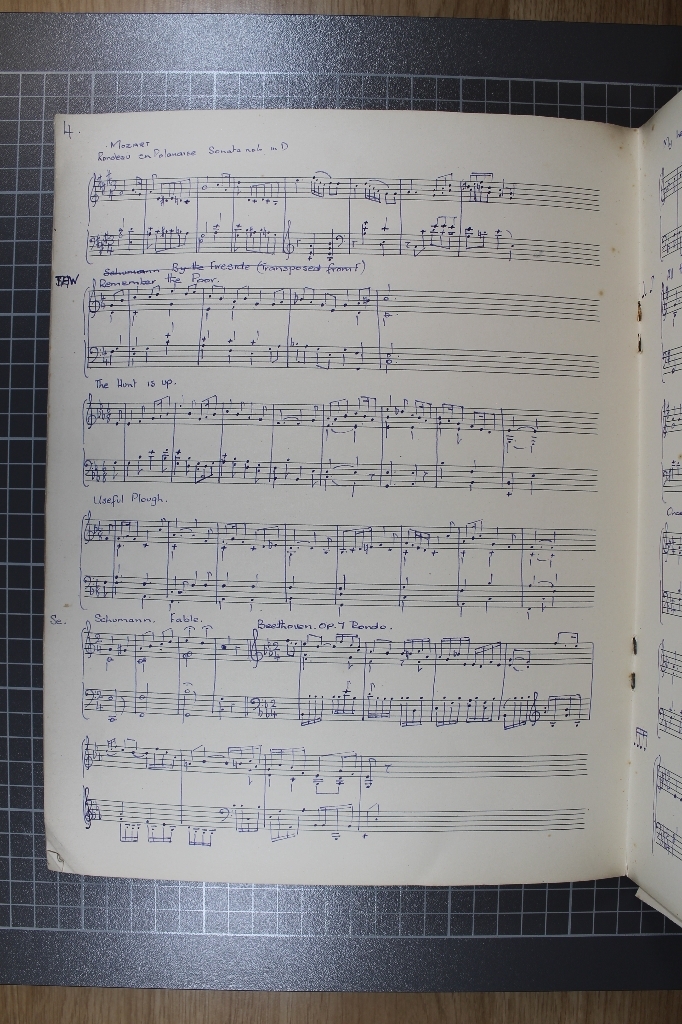 4.
Mozart
Rondeau en Polonaise Sonata no. in D
Schumann By the Fireside (transposed from F)
Remember the Poor.
The Hunt is up.
Useful Plough.
Se. Schumann. Fable. Beethoven. Op. 7 Rondo.